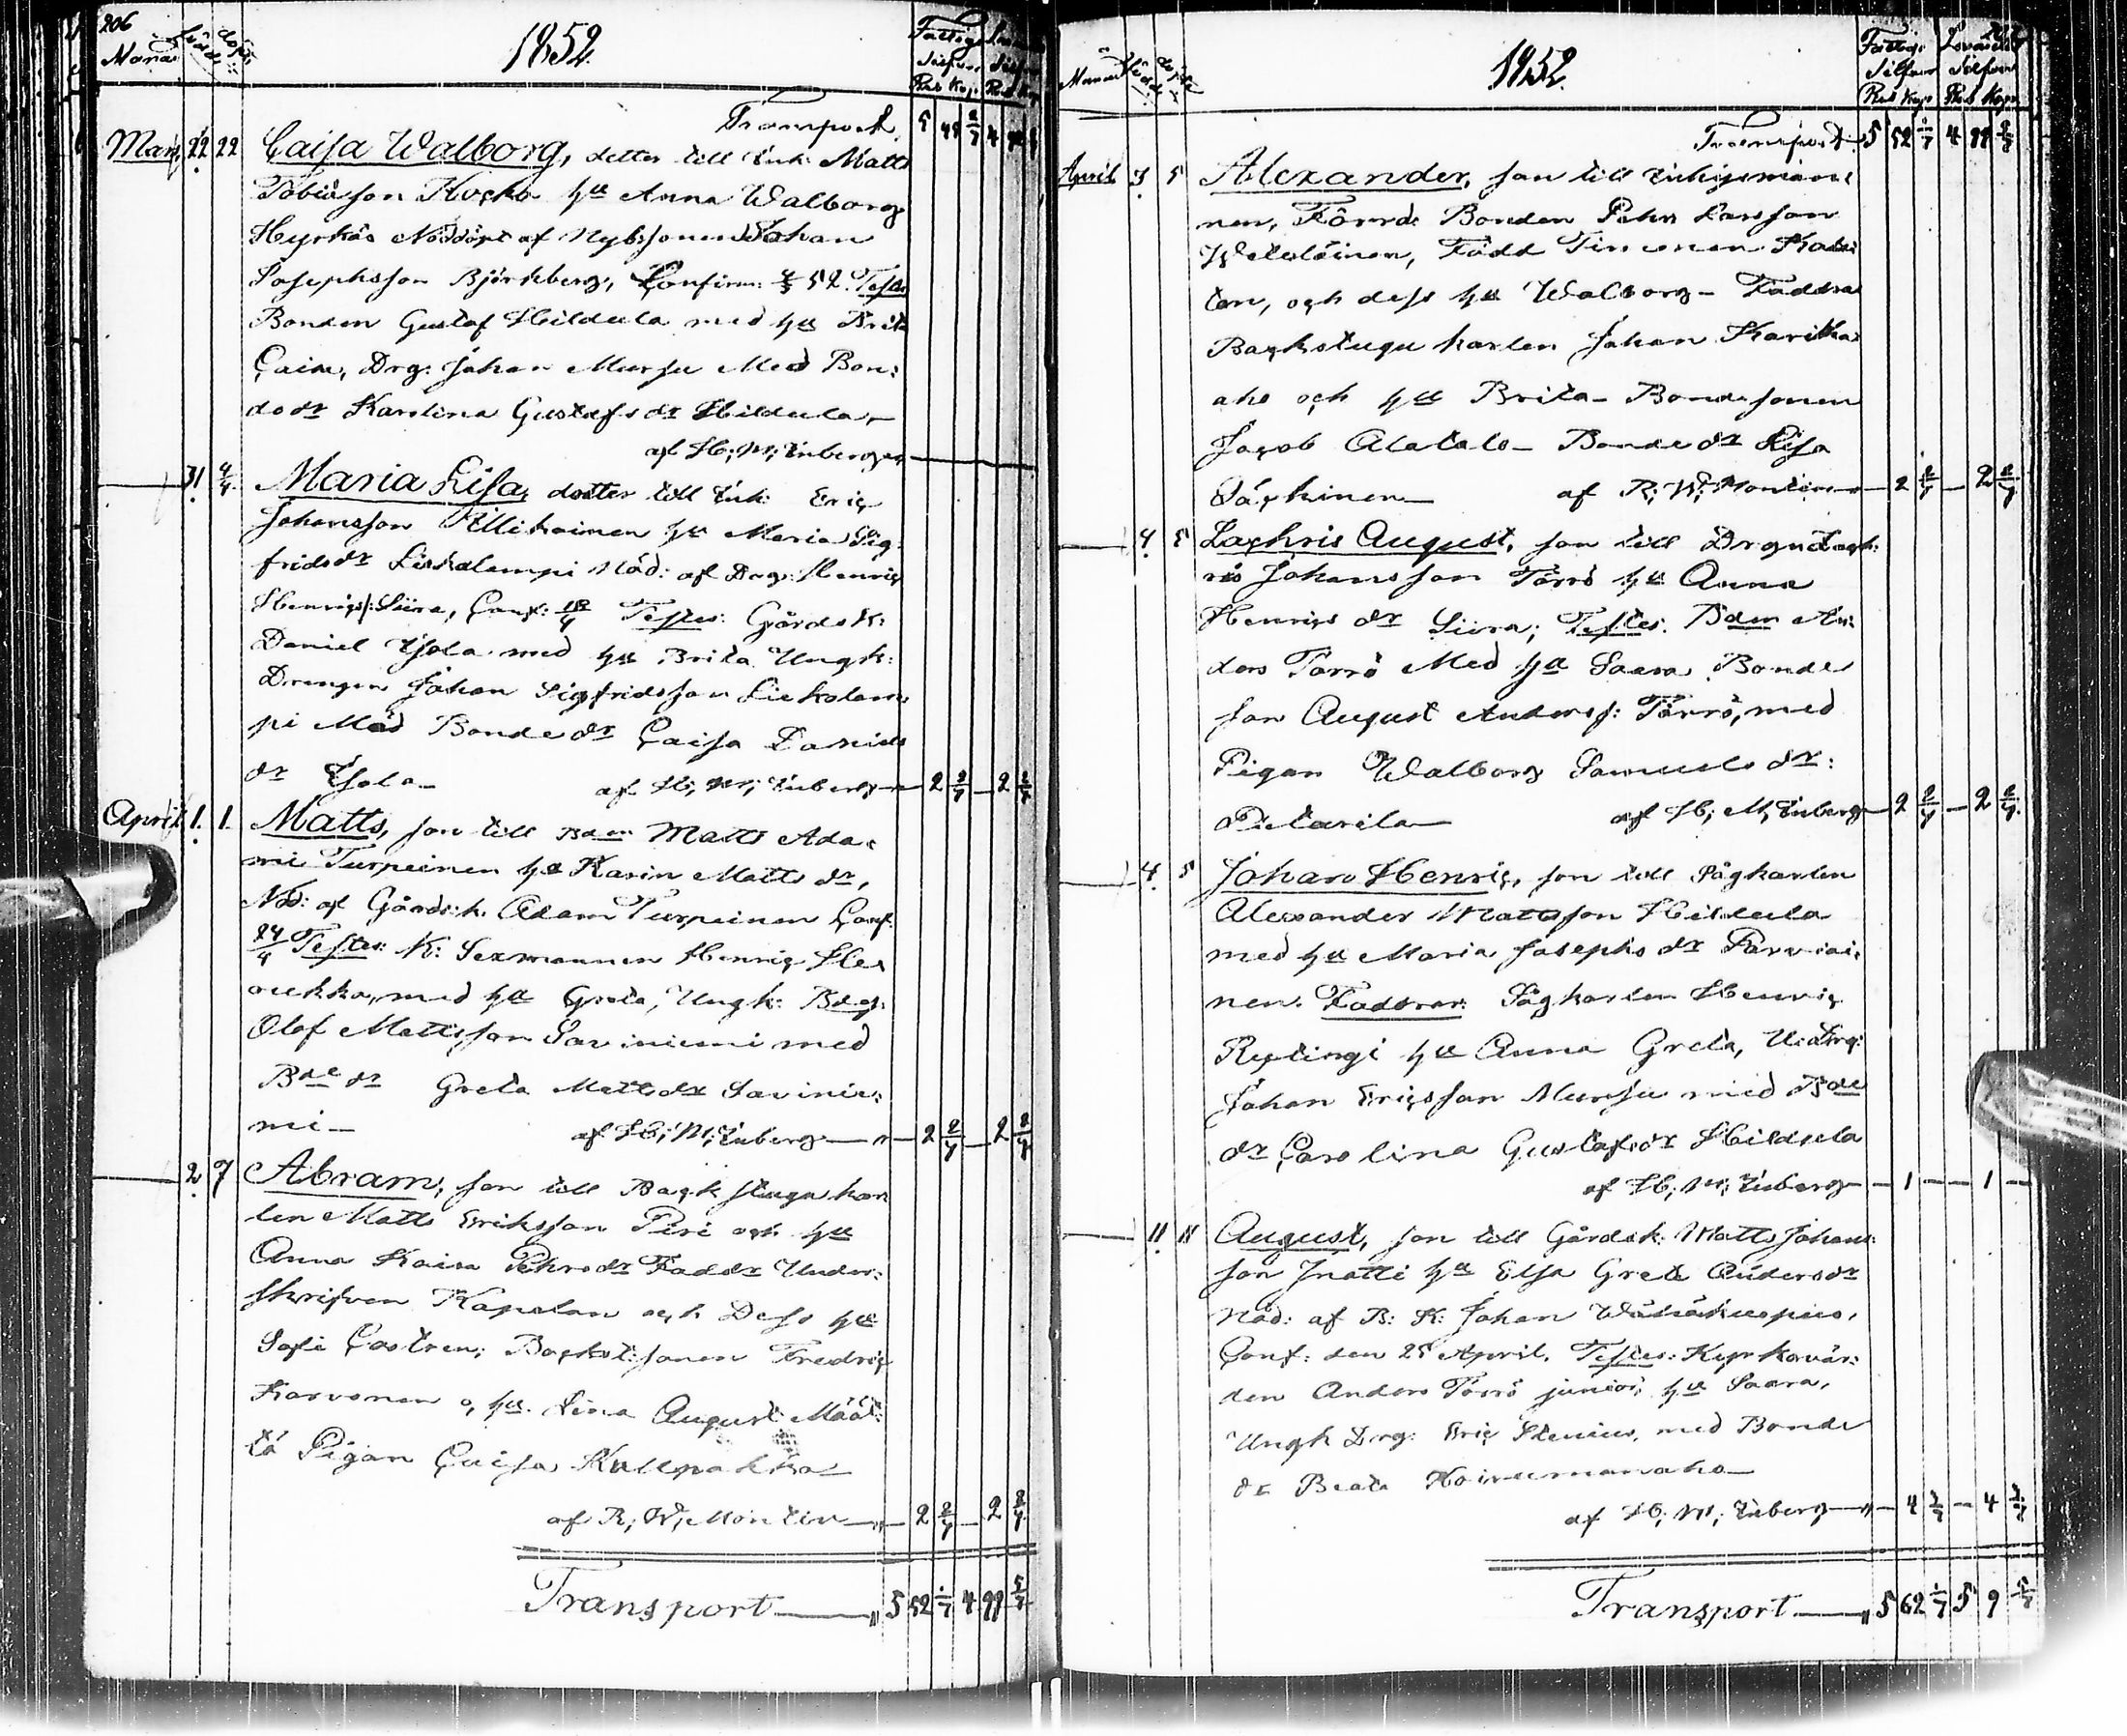 206
1852.
Månad födde döpte
Fattige Silfver Rub Kop.
Transport 5
Mars 22 22 Caisa Walborg, dotter till Inh: Matts
Tobiasson hu Anna Walborg
Nöddöpt af Nybssonen Johan
Josephsson Björkberg, Confirm: 52. Testes
Bonden Gustaf Hildula med hu Brita
Caisa, Drg: Johan Mursu Med Bon:
de dr Karolina Gustafs dr Hildula,
af H; M; Enberg
31 4/4 Maria Lisa, dotter till Inh: Eric
Johansson hu Maria Sig
frids dr Liekalampi Nöd: af Drg: Henric
Henrics: Siira, Conf: Testes: Gårds k:
Daniel Isola med hu Brita Ungk:
Drengen Johan Sigfridsson Liekalam
pi Med Bonde dr Caisa Daniels
dr Isola — af H; M; Enberg — 2 2/7 — 2 2/7
April 1. 1. Matts, son till Bden Matts Ada:
mi Turpeinen hu Karin Matts dr,
Nöd: af Gårds: k. Adam Turpeinen Conf.
24/4 Testes: K: Sexmannen Henric
med hu Greta, Ungk:
Olof Mattsson Saviniemi med
Bde dr Greta Matts dr Savinie:
mi — af H; M; Enberg — 2 2/7 — 2 2/7
2 7 Abram, son till Backstuga kar
len Matts Eriksson Piri och hu
Anna Kaisa Pehrs dr Faddr Under:
skrifven Kapelan och Dess hu
Sofi Castren; Backst: sonen Fredric
Karvonen o, hu. Lina August Määt:
tä Pigan Caisa
af R; W; Montin — 2 2/7 — 2 2/7
Transport — 5 52 1/7 4 99 5/7
1852.
Månad födde döpte
Fattige Silfver Rub Kop
Silfver Rub Kop
Transport 5 52 1/7 4 99 5/7
April 3 5 Alexander, son till
nen, Förrd: Bonden Pehr Larsson
Född
ten, och dess hu Walborg — Faddrar
Backstugu karlen Johan
aho och hu Brita — Bondesonen
Jacob Alatalo — Bonde dr Lisa
af R; W; Montin — 2 2/7 — 2 2/7
4 5 Zachris August, son till Drgn Zach:
ris Johansson Törrö hu Anna
Henrics dr Siira; Testes: Bden An:
ders Törrö Med hu Saara Bonde
son August Anderss: Törrö, med
Pigan Walborg Samuels dr:
af H; M; Enberg — 2 2/7 — 2 2/7
4. 5 Johan Henric, son till Sågkarlen
Alexander Mattsson Hildula
med hu Maria Josephs dr Parviai:
nen. Faddrar: Sågkarlen Henric
hu Anna Greta, U: Drg:
Johan Ericsson Mursu med Bde
dr Carolina Gustafs dr Hildula
af H; M; Enberg — 1 — 1 —
11 11 August, son till Gårdsk: Matts Johans
son Inatti hu Elsa Greta Anders dr
Nöd: af B: K: Johan
Conf: den 25 April. Testes: Kyrkovär:
den Anders Törrö junior, hu Saara,
Ungk Drg: Eric Stenius, med Bonde
dr Beata
af H; M; Enberg — 4 — 4
Transport — 5 62 1/7 5 9 5/7